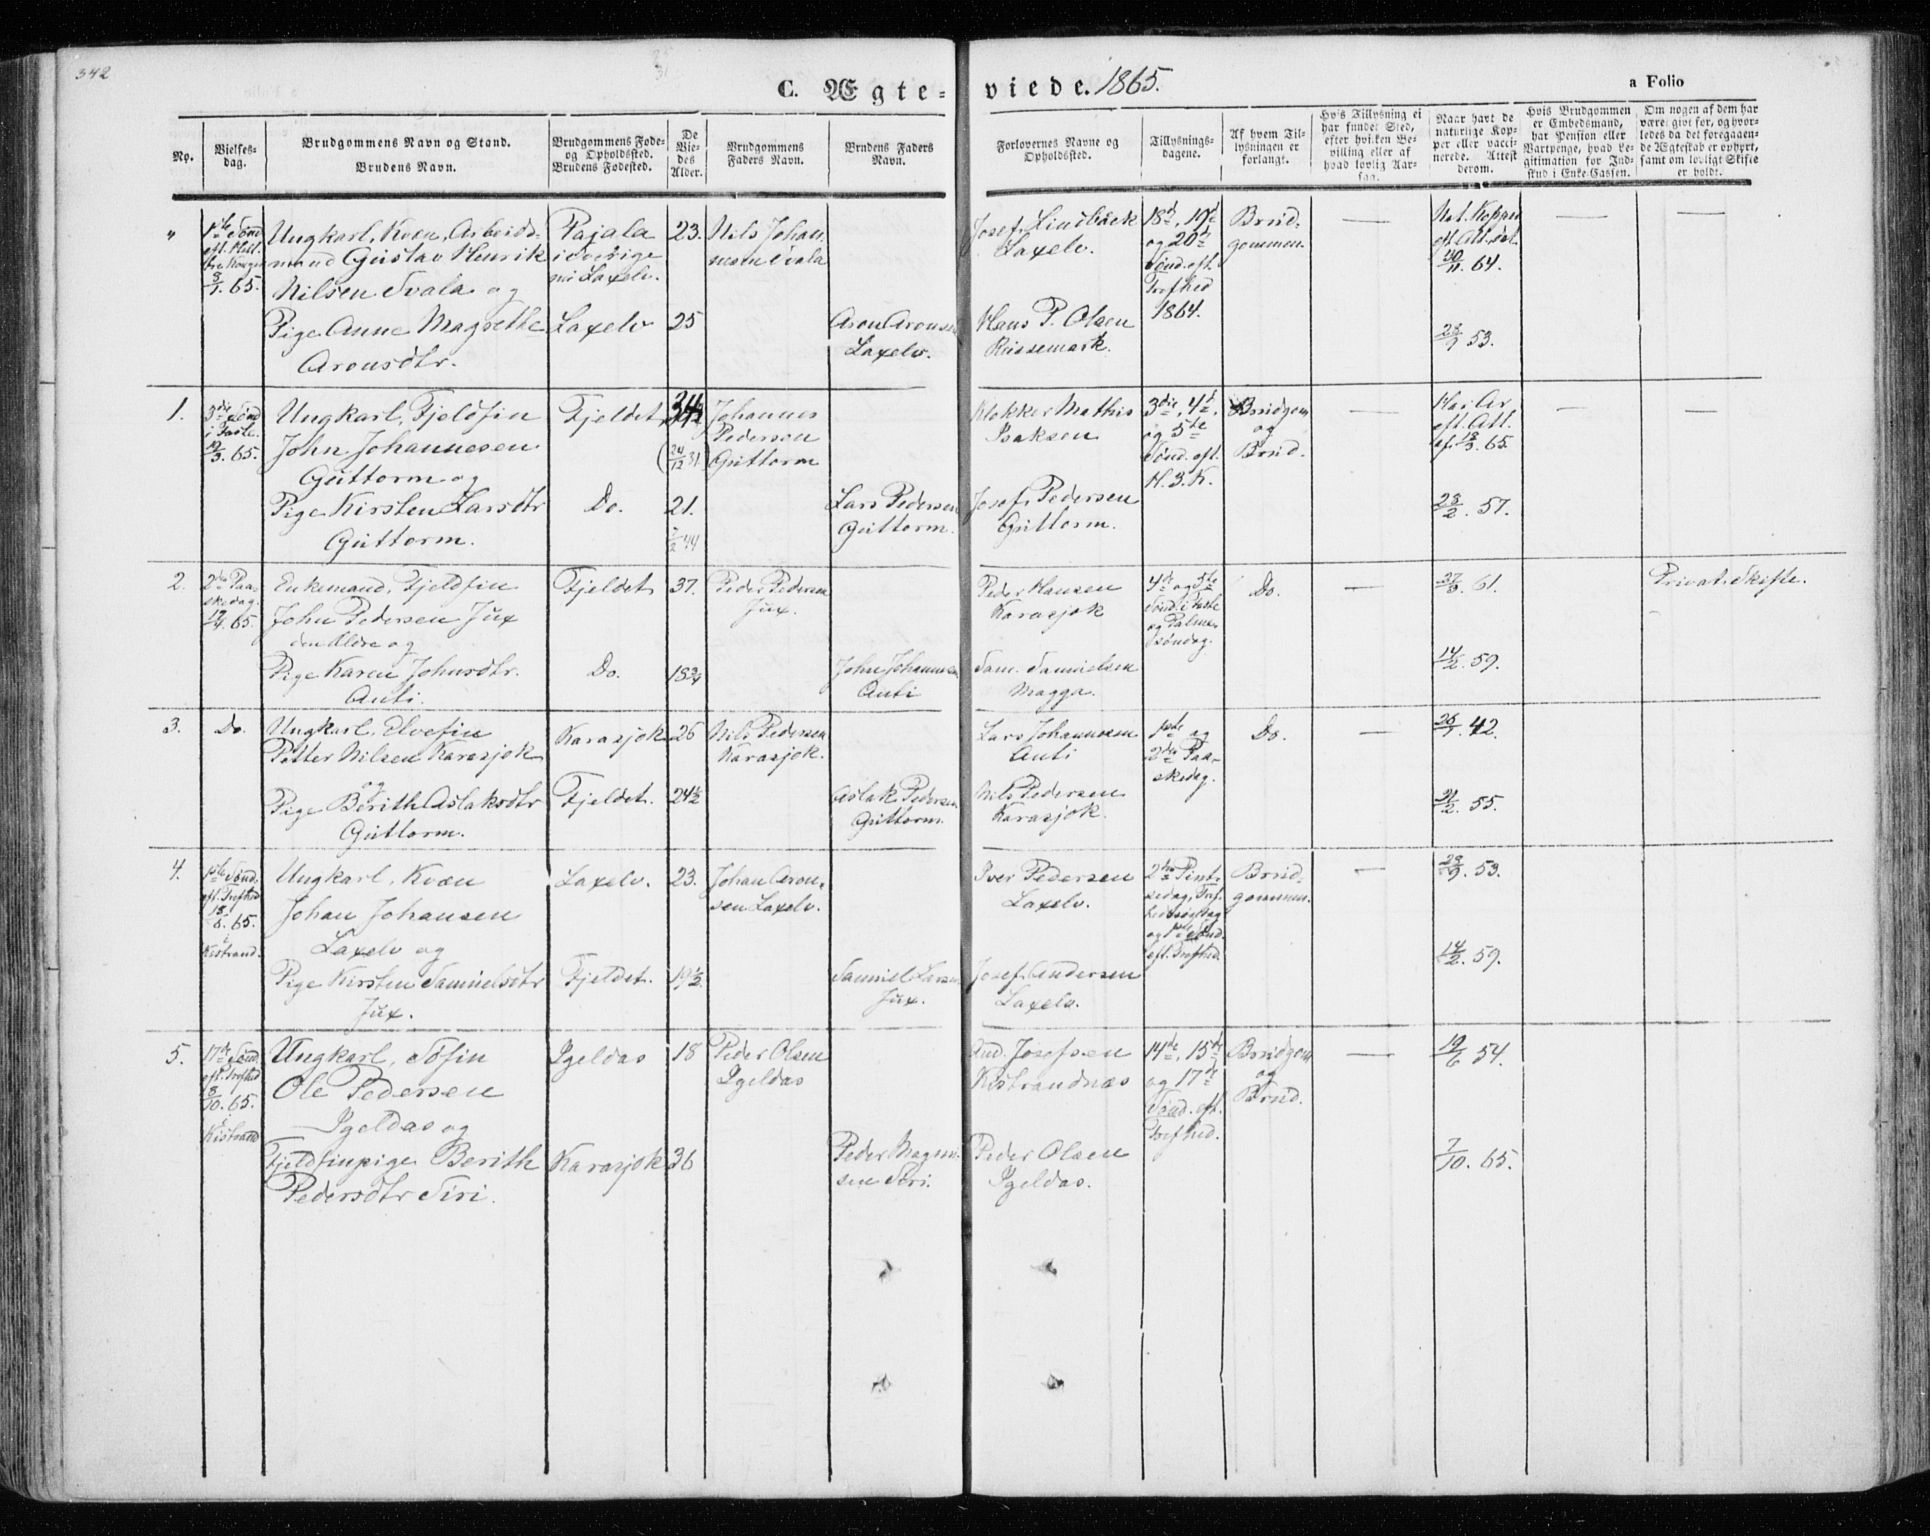 342
C. Ægte-
viede. 1865.
a Folio
No.
Vielses-
dag.
Brudgommens Navn og Stand.
Brudens Navn.
Brudgommens Føde-
og Opholdssted.
Brudens Fødested.
De
Vie-
des
Alder.
Brudgommens
Faders Navn.
Brudens Faders
Navn.
Forlovernes Navne og
Opholdssted.
Tillysnings-
dagene.
Af hvem Til-
lysningen er
forlangt.
Hvis Tillysning ei
har fundet Sted,
efter hvilken Be-
villing eller af
hvad lovlig Aar-
sag.
Naar havt de
naturlige Kop-
per eller vacci-
nerede. Attest
derom.
Hvis Brudgommen
er Embedsmand,
har Pension eller
Vartpenge, hvad Le-
gitimation for Ind-
skud i Enke-Cassen.
Om nogen af dem har
været gift før, og hvor-
ledes da det foregaaen-
de Ægteskab er ophørt,
samt om lovligt Skifte
er holdt.
"
1ste Sønd
eft. Hell.
tre Konger
8/1. 65.
Ungkarl, Kvæn, Arbeids-
mand Gustav Henrik
Nilsen Svala og
Pajala
i Sverige
nu Laxelv.
23.
Nils Johan-
nesen Svala
Josef Lindbäck
Laxelv.
18de, 19de
og 20de
Sønd. eft.
Trefhed
1864.
Brud-
gommen.
—
Nat. Kopper
eft. Att.
30/11. 64.
—
—
Pige Anne Magrethe
Aronsdtr.
Laxelv
25
Aron Aronsen
Laxelv.
Hans P. Olsen
Russemark.
23/9 53.
1.
3die Sønd
i Faste.
19/3. 65.
Ungkarl, Fjeldfin
John Johannesen
Guttorm og
Fjeldet
34
(24/12 31)
Johannes
Pedersen
Guttorm
Klokker Mathis
Isaksen
3die, 4de,
og 5te
Sønd. eft.
H. 3. K.
Brudgom
og
Brud.
—
Har Ar
eft. Att.
af 18/3. 65.
—
—
Pige Kirsten Larsdtr
Guttorm.
Do.
21.
/2 44
Lars Pedersen
Guttorm.
Josef Pedersen
Guttorm.
23/2. 57.
2.
2den Paa-
skedag.
17/4. 65.
Enkemand, Fjeldfin
John Pedersen Jux
den Ældre og
Fjeldet
37.
Peder Pedersen
Jux.
Peder Hansen
Karasjok
4de og 5te
Sønd. i Faste
og Palme-
søndag.
Do.
—
27/3. 61.
Privat Skifte.
Pige Karen Johnsdtr.
Anti.
Do.
18 3/4
John Johannesen
Anti
Sam. Samuelsen
Magga.
14/2. 59.
3.
Do.
Ungkarl, Elvefin
Petter Nilsen Karasjok
og
Karasjok
26
Nils Pedersen
Karasjok.
Lars Johannesen
Anti
1ste og
2den Paa-
skedag.
Do.
—
26/7. 42.
Pige Berith Aslaksdtr
Guttorm.
Fjeldet.
24 1/2
Aslak Pedersen
Guttorm.
Nils Pedersen
Karasjok.
21/2. 55.
4.
1ste Sønd.
eft. Trefhed
18/6. 65.
i
Kistrand.
Ungkarl, Kvæn
Johan Johansen
Laxelv og
Laxelv.
23.
Johan Aron-
sen Laxelv.
Iver Pedersen
Laxelv.
2den Pint-
sedag, Tref-
hedssøndag
og 1ste Sønd.
eft. Trefhed.
Brud-
gommen.
—
23/9. 53.
Pige Kirsten Samuelsdtr
Jux.
Fjeldet.
19 1/2.
Samuel Larsen
Jux.
Josef Andersen
Laxelv.
14/2. 59.
5.
17de Sønd
eft. Trefhed
8/10. 65.
i
Kistrand
Ungkarl, Søfin
Ole Pedersen
Igeldas og
Igeldas
18
Peder Olsen
Igeldas
And. Josefsen
Kistrandnæs
14de, 15de
og 17de
Sønd. eft.
Trefhed.
Brudgom
og
Brud.
—
19/6 54.
Fjeldfinpige Berith
Pedersdtr Siri.
Karasjok
36
Peder Magn-
sen Siri.
Peder Olsen
Igeldas.
7/10. 65.